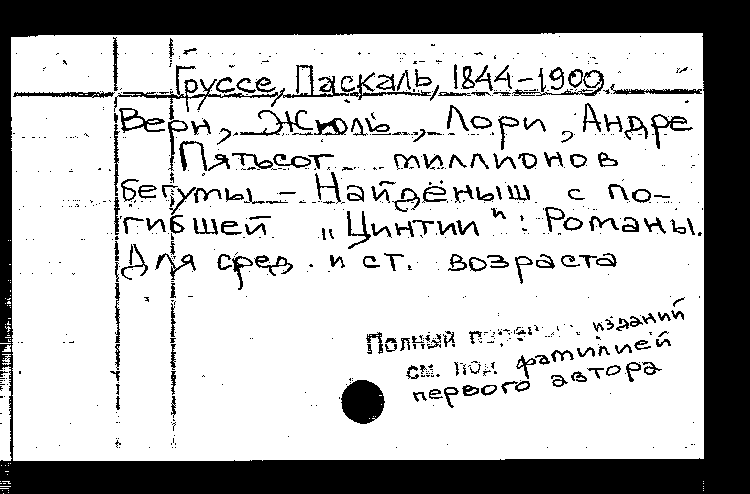 Груссе, Паскаль, 1844-1909.
Верн, Жюль, Лори, Андре
Пятьсот миллионов
бегумы - Найдёныш с по-
гибшей „Цинтии": Романы.
Для сред. и ст. возраста
Полный изданий
см. под фамилией
первого автора